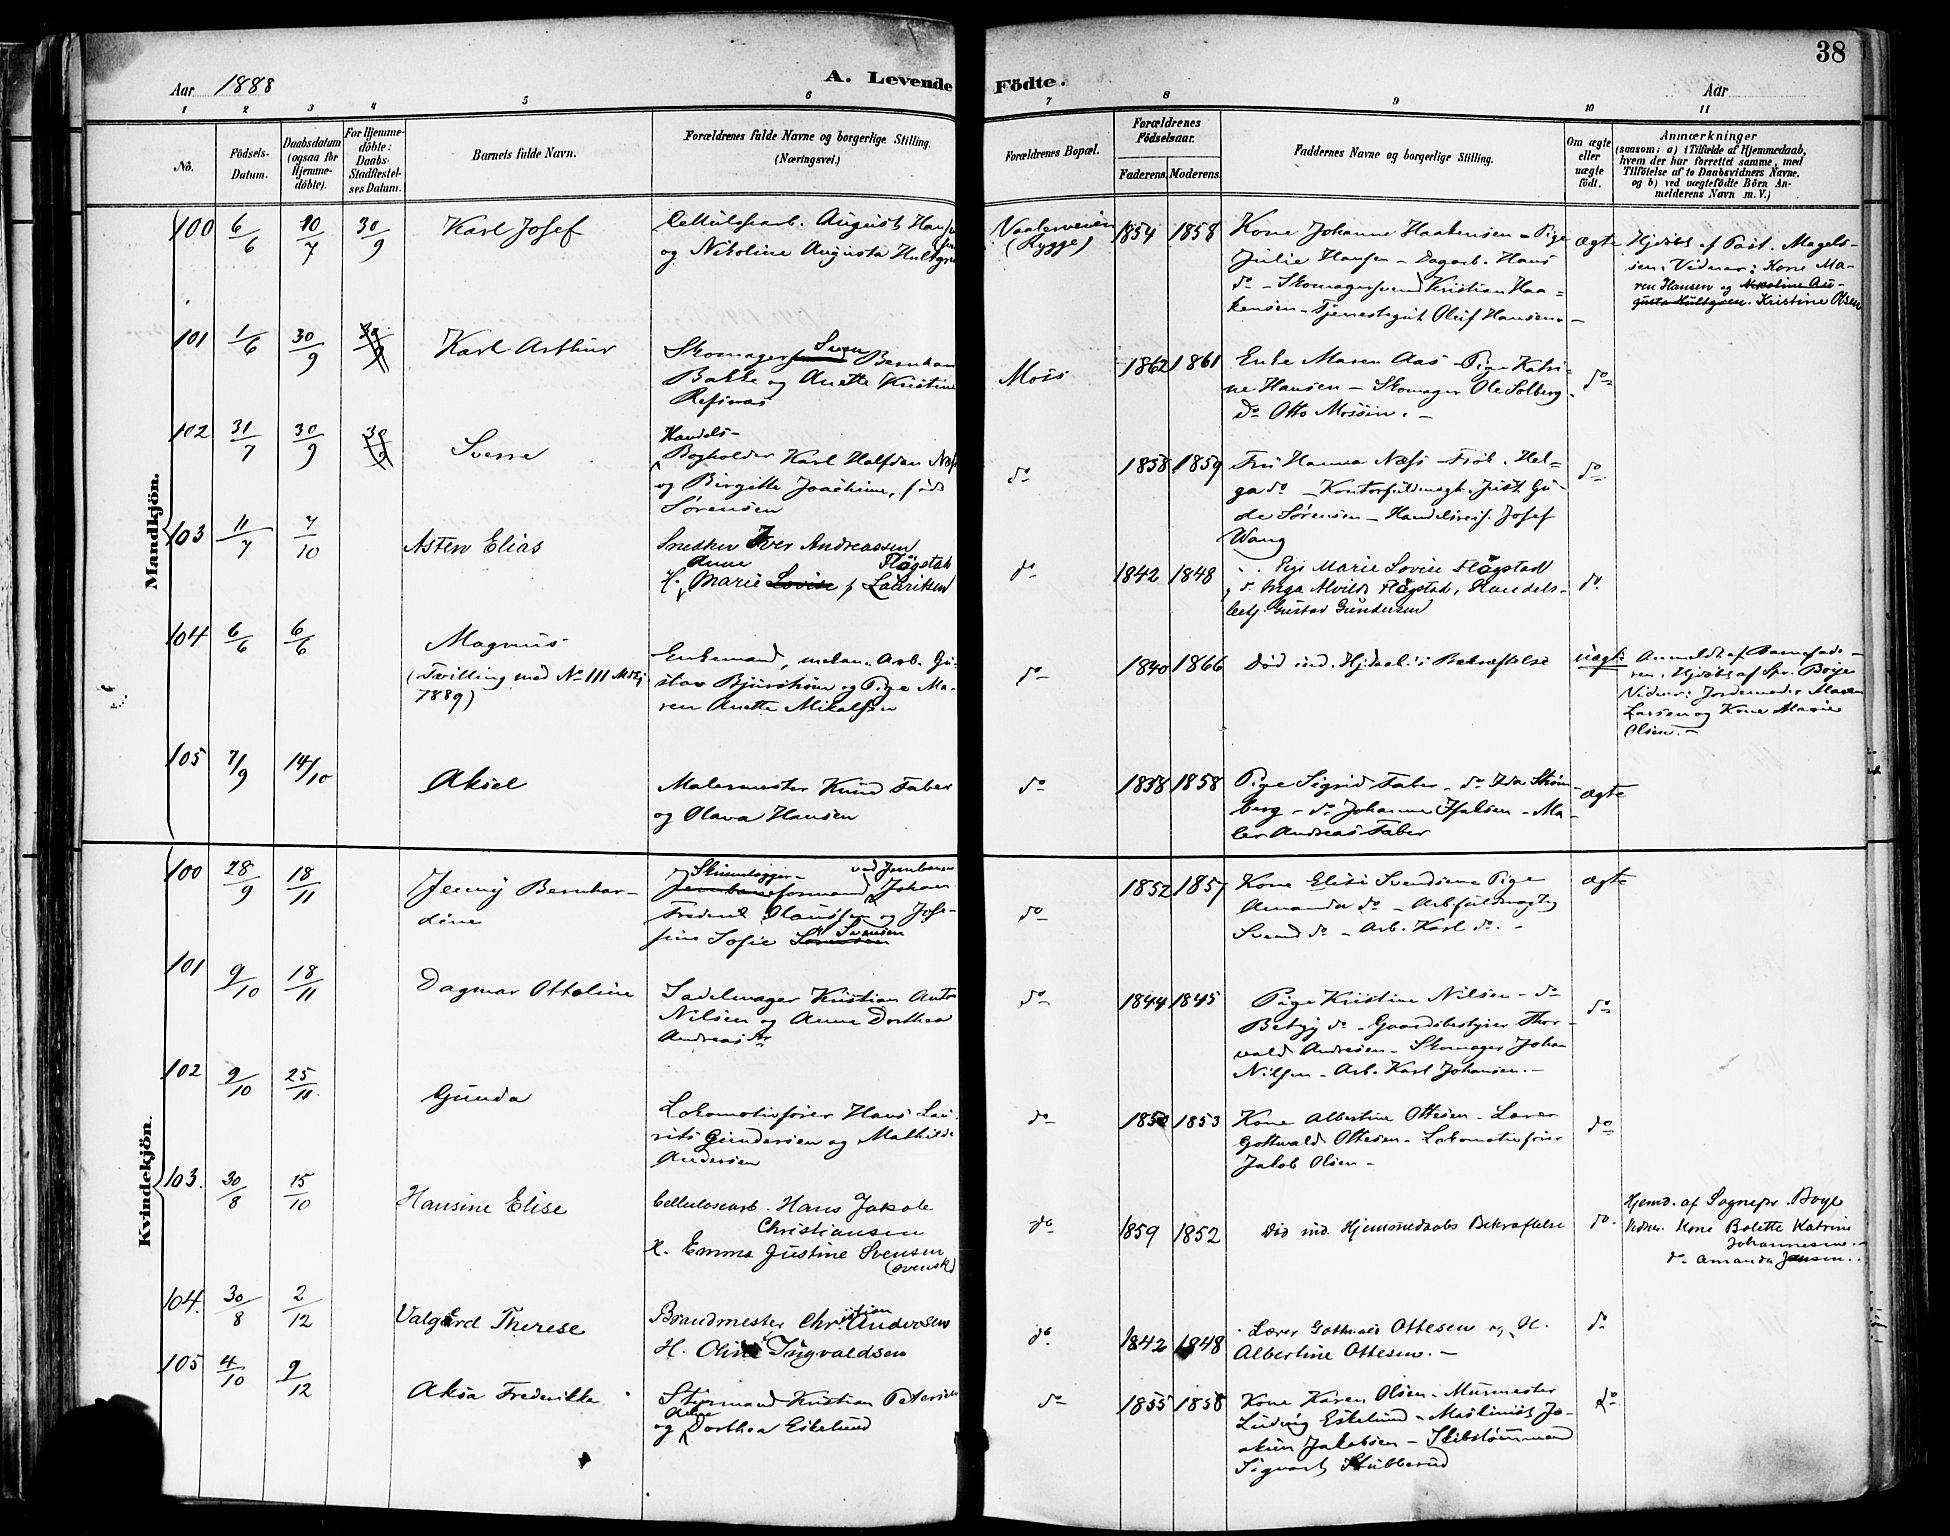 38
Aar 1888
A. Levende Födte.
Aar
1 2 3 4 5 6 7 8 9 10 11
Nô.
Födsels-Datum.
Daabsdatum (ogsaa for Hjemme-döbte).
For Hjemme-döbte: Daabs-Stadfæstel-ses Datum.
Barnets fulde Navn.
Forældrenes fulde Navne og borgerlige Stilling. (Næringsvei.)
Forældrenes Bopæl.
Forældrenes Födselsaar.
Faderens. Moderens.
Faddernes Navne og borgerlige Stilling.
Om ægte eller uægte födt.
Anmærkninger
(saasom: a) i Tilfælde af Hjemmedaab, hvem der har forrettet samme, med Tilföielse af to Daabsvidners Navne. og b) ved uægtefödte Börn An-melderens Navn m. V.)
Mandkjön.
100 6/6 10/7 30/9 Karl Josef
Cellulosearb. August Hansen
og Nikoline Augusta Hultgren
Vaalerveien (Rygge) 1854 1858
Kone Johanne Haakensen - Pige
Julie Hansen - Dagarb. Hans
do - Skomagersvend Kristian Haa-
kensen - Tjenestegut Oluf Hansen -
ægte
Hjdöbt af Past. Magels-
sen. Vidner: Kone Ma-
ren Hansen og Nikoline Au-
gusta Hultgren. Kristine Olsen
101 1/6 30/9 30/9 Karl Arthur
Skomagersvend Bernham
Bakke og Anette Kristine
Refsnes
Moss 1862 1861
Enke Maren Aas - Pige Katri-
ne Hansen - Skomager Ole Solberg -
do Otto Mossin. -
do
102 31/7 30/9 30/9 Sverre
Handels-
Bogholder Karl Halfdan Næss
og Birgitte Joachime, född
Sørensen
do 1858 1859
Fru Hanna Næss - Frök. Hel-
ga do - Kontorfuldmægt. Just Gu-
de Sørensen - Handelsreis. Josef
Wang
do
103 11/7 7/10 Asten Elias
Snedker Iver Andreassen
Flågstad
H. Anne Marie Lovise f. Lauritsen
do 1842 1848
Pige Marie Lovise Flågstad
do. Inga Alvilde Flågstad, Handels-
betj. Gustav Gundersen
do.
104 6/6 6/6 Magnus
(Tvilling med No 111 Mdkj
1889)
Enkemand, mekan. Arb. Gu-
stav Bjurström og Pige Ma-
ren Anette Mikalsen
do 1840 1866
Död ind. Hjdaab.s Bekræftelse
uægte
Anmeldt af Barnefade-
ren. Hjdöbt af Spr. Boye
Vidner: Jordemoder Maren
Larsen og Kone Marie
Olsen. -
105 7/9 14/10 Aksel
Malermester Knud Faber
og Olava Hansen
do 1838 1858
Pige Sigrid Faber - do Ida Strøm-
berg - do Johanne Ihsalsen - Ma-
ler Andreas Faber
ægte
Kvindekjön.
100 28/9 18/11 Jenny Bernhar-
dine
Skinnelægger- ved Jernbanen
Jernbaneformand Johan
Fredrik Olaussen og Jose-
fine Sofie Sørensen Svensen
do 1852 1857
Kone Elise Svendsen Pige
Amanda do - Arb.fuldmægtig
Svend do - Arb. Karl do. -
ægte
101 9/10 18/11 Dagmar Otteline
Sadelmager Kristian Anton
Nilsen og Anne Dorthea
Andreasdr
do 1844 1845
Pige Kristine Nilsen - do
Betzy do - Gaardsbestyrer Thor-
vald Andresen - Skomager Johan
Nilsen - Arb. Karl Johansen. -
do
102 9/10 25/11 Gunda
Lokomotivfører Hans Lau-
rits Gundersen og Mathilde
Andersen
do 1850 1853
Kone Albertine Ottesen - Lærer
Gottwald Ottesen - Lokomotivfører
Jakob Olsen -
do
103. 30/8 15/10 Hansine Elise
Cellulosearb. Hans Jakob
Christiansen
H. Emma Justine Svensen
(svensk)
do 1859 1852
Död ind. Hjemmedaabs Bekræftelse
do.
Hjemd. af Sognepr. Boye
Vidner. Kone Bolette Katrine
Johannesen. -
do - Amanda Jensen..
104. 30/8 2/12 Valgerd Therese
Brandmester Christian Andersen
H. Oline Ingvaldsen
do. 1842 1848
Lærer Gottwald Ottesen og H.
Albertine Ottesen. -
do
105 4/10 9/12 Aksa Frederikke
Styrmand Kristian Petersen
og Dorthea Eskelund
do 1855 1858
Kone Karen Olsen - Murmester
Ludvig Eskelund - Maskinist Jo-
akim Jakobsen - Skibstømmermand
Sigvart Stubberud
do